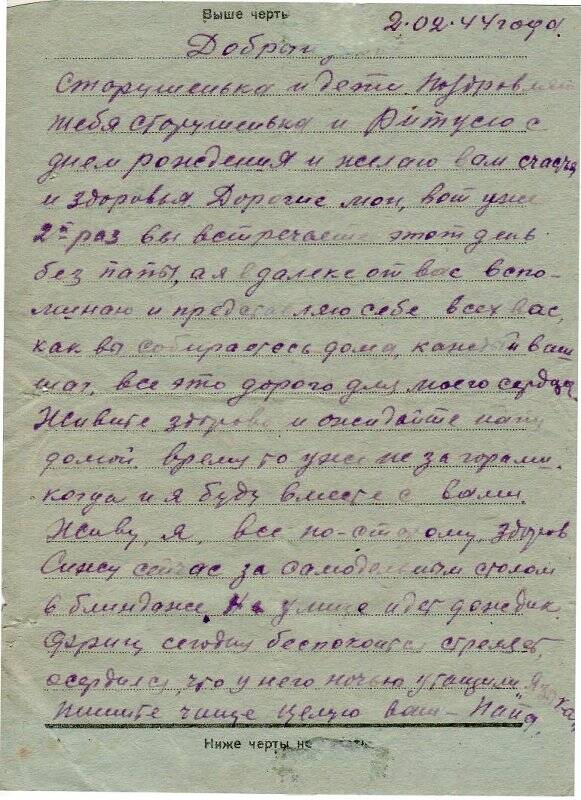 Выше черты
2.02.44 года
Добрая
старушенька и дети поздравляю
тебя старушенька и Ритусю с
днем рождения и желаю вам счастья
и здоровья Дорогие мои, вот уже
2й раз вы встречаете этот день
без папы, а я вдалеке от вас вспо-
минаю и представляю себе всех вас,
как вы собираетесь дома, каждый ваш
шаг, все это дорого для моего сердца
Живите здорово и ожидайте папу
домой. время то уже не за горами.
когда и я буду вместе с вами.
Живу, я, все по-старому, здоров
Сижу сейчас за самодельным столом
в блиндаже, На улице идет дождик.
Фриц сегодня беспокоится стреляет,
осердился, что у него ночью утащили
Пишите чаще целую ваш - Папа.
Ниже черты не